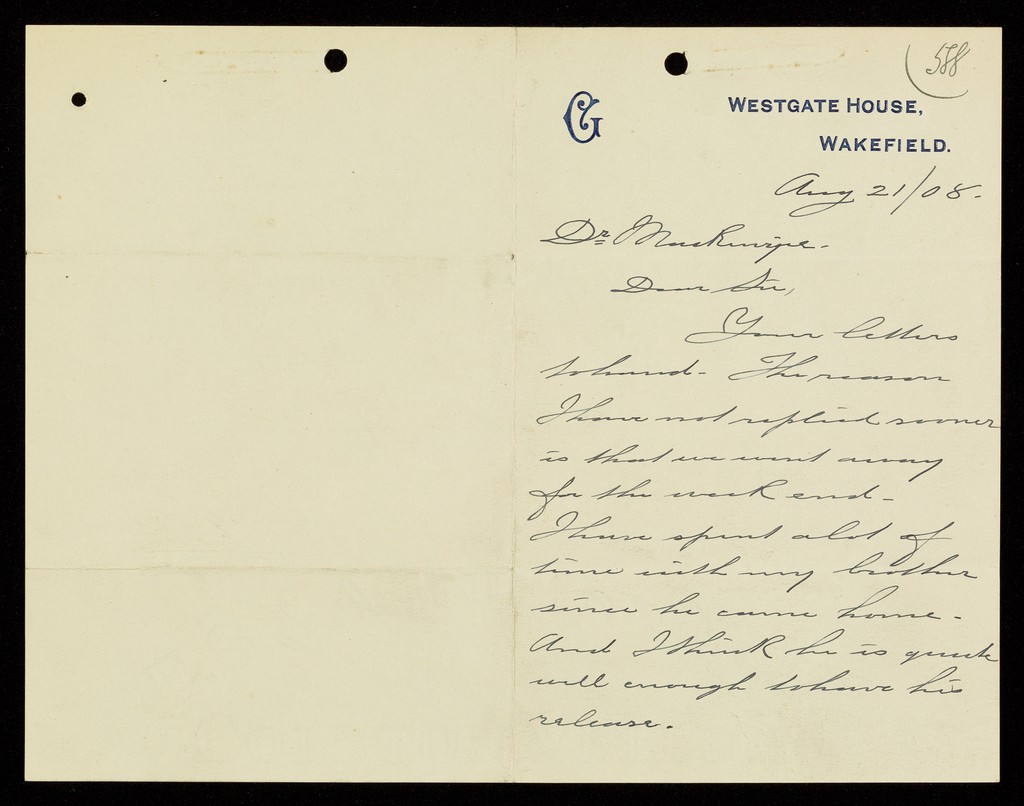 588
CG
WESTGATE HOUSE,
WAKEFIELD.
Aug 21/08.
Dr Mackenzie.
Dear Sir,
Your letters
to hand - The reason
I have not replied sooner
is that we went away
for the week end -
I have spent alot of
time with my brother
since he came home -
And I think he is quite
well enough to have his
release.